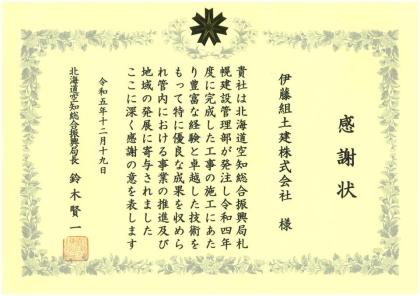 感謝状
伊藤組土建株式会社 様
貴社は北海道空知総合振興局札
幌建設管理部が発注し令和四年
度に完成した工事の施工にあた
り豊富な経験と卓越した技術を
もって特に優良な成果を収めら
れ管内における事業の推進及び
地域の発展に寄与されました
ここに深く感謝の意を表します
令和五年十二月十九日
北海道空知総合振興局長 鈴木賢一